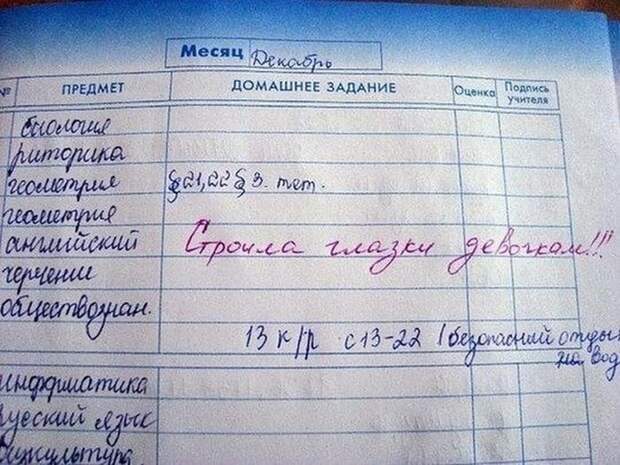 Месяц Декабрь
№ ПРЕДМЕТ ДОМАШНЕЕ ЗАДАНИЕ Оценка Подпись учителя
биология
риторика
геометрия § 21,22 § 3. тет.
геометрия
английский Строила глазки девочкам!!!
черчение
обществознан.
13 к/р с13-22 (безопасний отды
на вод
информатика
русский язык